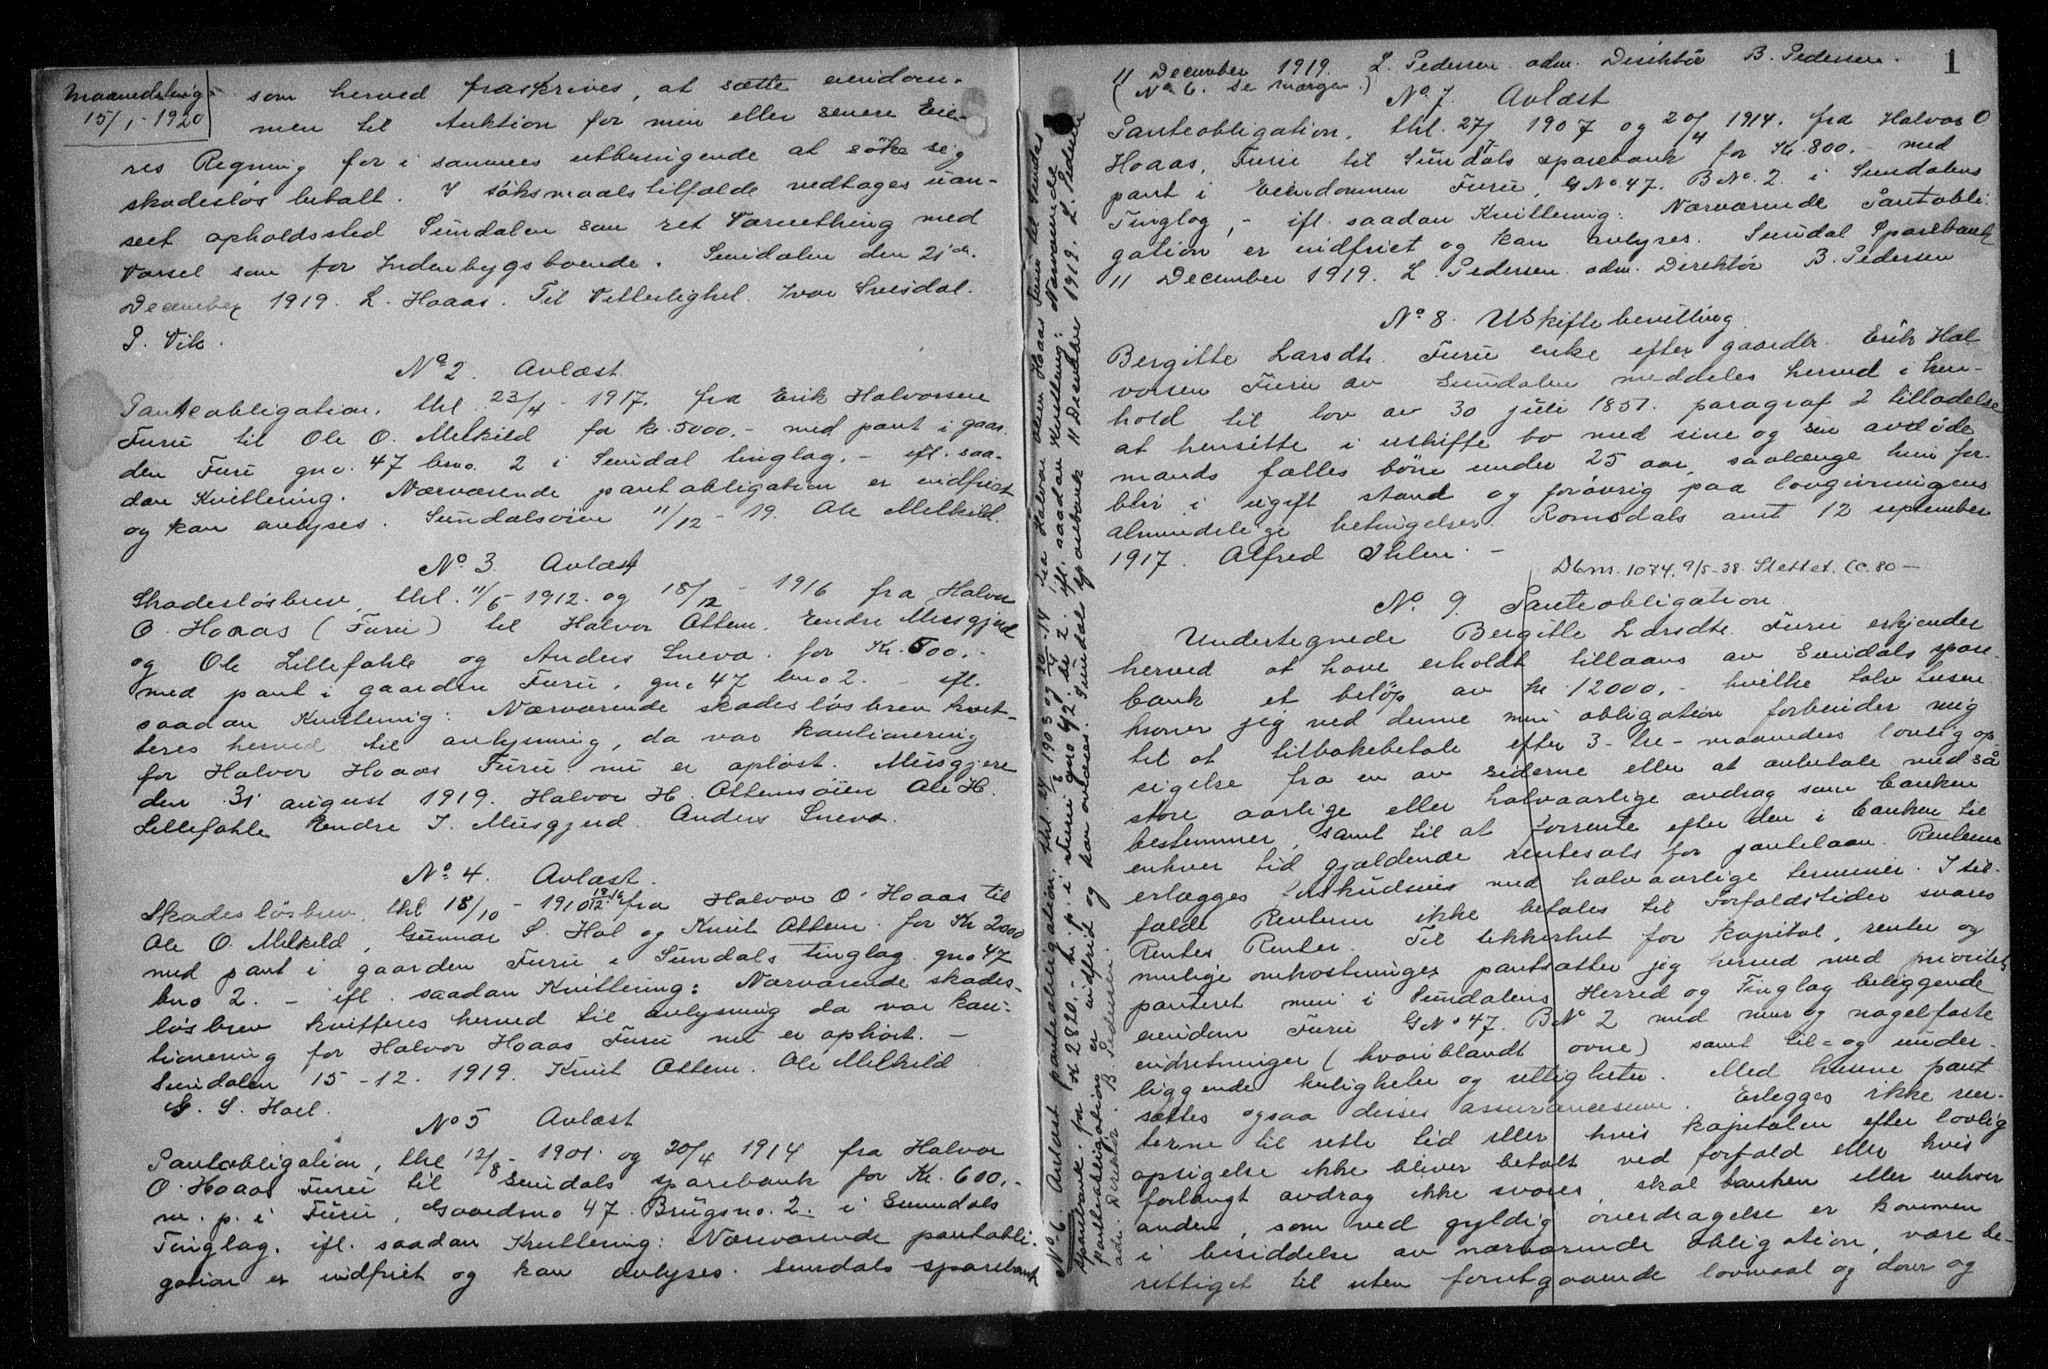 Maanedsting
15/1-1920
som herved fraskrives, at sætte eiendom-
men til Auktion for min eller senere Eie-
res Regning for i sammes utbringende at söke sig
skadeslös betalt. I söksmaalstilfælde vedtages uan-
seet opholdssted Sundalen som ret Værnething med
Varsel som for Indenbygsboende. Sundalen den 21 de
December 1919. L. Hoaas. Til Vitterlighet. Ivar Snisdal.
P. Vik.
No 2. Avlæst.
Panteobligation, thl. 23/4 - 1917. fra Erik Halvorsen
Furu til Ole O. Melkild for kr. 5000.- med pant i gaar-
den Furu gno. 47 bno. 2 i Sundal tinglag, - ifl. saa-
dan Kvittering. Nærværende pantobligation er indfriet
og kan avlyses. Sundalsöien 11/12 - 19. Ole Melkild.
No 3. Avlæst
Skadeslösbrev, thl. 11/6 - 1912. og 18/12 - 1916 fra Halvor
O. Hoaas (Furu) til Halvor Ottem. Endre Musgjerd
og Ole Lillefahle og Anders Sneva. for Kr. 500.-
med pant i gaarden Furu, gno 47 bno 2. - ifl.
saadan Kvittering: Nærværende skadeslösbrev kvit-
teres herved til avlysning, da vor kautionering
for Halvor Hoaas Furu nu er oplöst. Musgjerd
den 31 august 1919. Halvor H. Ottemsöien Ole H.
Lillefahle Endre I. Musgjerd. Anders Sneva.
No 4. Avlæst.
Skadeslösbrev, thl 18/10 - 1910 18/12 16 fra Halvor O. Hoaas til
Ole O. Melkild, Gunnar S. Hol og Knut Ottem. for Kr 2000
med pant i gaarden Furu i Sundals tinglag. gno 47
bno 2. - ifl. saadan Kvittering: Nærværende skades-
lösbrev kvitteres herved til avlysning da vor kau-
tionering for Halvor Hoaas Furu nu er ophört. -
Sundalen 15 - 12. 1919. Knut Ottem. Ole Melkild
G. S. Hoel.
No 5 Avlæst
Pantobligation, thl 12/8 - 1901. og 20/4 1914 fra Halvor
O. Hoaas Furu til Sundals sparebank for Kr. 600.-
m. p. i Furu, Gaardsno 47. Brugsno. 2. i Sunndals
Tinglag. ifl. saadan Kvittering: Nærværende pantobli-
gation er indfriet og kan avlyses. Sundals sparebank
No 6. Avlæst panteobligation, thl. 1903 og 20/4-14 fra Halvor Olsen Hoaas Furu til Sundals
sparebank. for kr 2820.- m. p. i Furu gno 47. br 2. ifl. saadan Kvittering: Nærværende
pantobligation er indfriet og kan avlæses. Sundals sparebank 11 Desember 1919. L. Pedersen
adm. Direktör. B. Pedersen.
1
11 December 1919. L. Pedersen adm. Direktör B. Pedersen.
(No 6. se margen.)
No 7. Avlæst
Panteobligation, thl. 27/ 1907 og 20/4 1914. fra Halvor O
Hoaas, Furu til Sundals sparebank for Kr. 800.- med
pant i Eiendommen Furu, GNo. 47. BNo. 2. i Sundalens
Tinglag, - ifl. saadan Kvittering: Nærværende Pantobli-
gation er indfriet og kan avlyses. Sundal Sparebank
11 December 1919. L. Pedersen adm. Direktör B. Pedersen
No 8. Uskiftebevilling.
Bergitte Larsdtr. Furu enke efter gaardbr. Erik Hal-
vorsen Furu av Sundalen meddeles herved i hen-
hold til lov av 30 juli 1851. paragraf 2 tilladelse
at hensitte i uskifte bo med sine og sin avdöde
mands fælles börn under 25 aar, saalænge hun for-
blir i ugift stand og forövrig paa lovgivningens
almindelige betingelser. Romsdals amt 12 september
1917. Alfred Ihlen. -
Dbnr. 1074. 9/5-38. Slettet. (C. 80 -
No. 9. Panteobligation.
Undertegnede Bergitte Larsdtr. Furu erkjender
herved at have erholdt tillaans av Sundals spare-
bank et belöp av kr. 12000.- hvilke tolv tusen
kroner jeg ved denne min obligation forbinder mig
til at tilbakebetale efter 3- tre- maaneders lovlig op-
sigelse fra en av siderne eller at avbetale med så
store aarlige eller halvaarlige avdrag som banken
bestemmer, samt til at forrente efter den i banken til
enhver tid gjældende rentesats for pantelaan. Renterne
erlægges forskudsvis med halvaarlige terminer. I til-
fælde Renterne ikke betales til Forfaldstider svares
Rentes Renter. Til sikkerhet for kapital, renter og
mulige omkostninger pantsætter jeg herved med prioritets
panteret min i Sundalens Herred og Tinglag beliggende
eiendom Furu GNo 47. BNo 2 med mur og nagelfaste
indretninger (hvoriblandt ovne) samt til= og under-
liggende herligheter og rettigheter. Med husene pant
sættes ogsaa disses assurancesum. Erlægges ikke ren-
terne til rette tid eller hvis kapitalen efter lovlig
opsigelse ikke bliver betalt ved forfald eller hvis
forlangt avdrag ikke svares, skal banken eller enhver
anden, som ved gyldig overdragelse er kommen
i besiddelse av nærværende obligation, være be-
rettiget til uten forutgaaende lovmaal og dom og